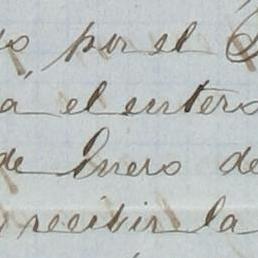 por el
el entero
de Enero de
recibir la